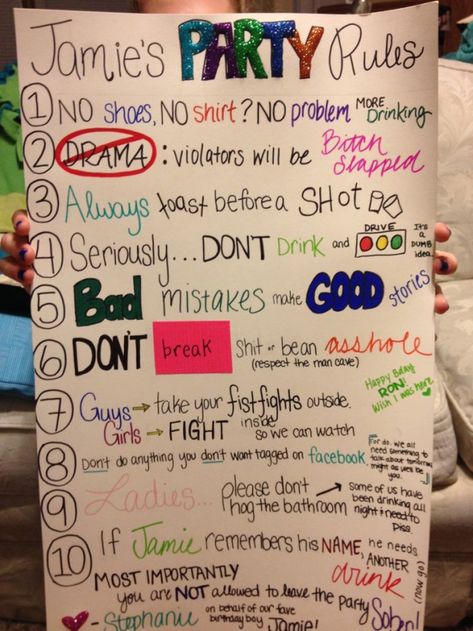 Jamie's PARTY Rules
1 NO shoes, NO shirt? NO problem MORE Drinking
2 DRAMA: violators will be Bitch Slapped
3 Always toast before a SHOT
4 Seriously... DON'T Drink and DRIVE It's a DUMB idea.
5 Bad mistakes make GOOD stories
6 DON'T break shit or bean asshole
(respect the man cave)
Happy Bday RON! Wish I was here
7 Guys → take your fistfights outside.
Girls → FIGHT inside so we can watch
8 Don't do anything you don't want tagged on facebook.
"or do. we all need something to talk about tomorrow might as well be you."
9 Ladies... please don't hog the bathroom → some of us have been drinking all night & need to piss
10 If Jamie remembers his NAME, he needs ANOTHER drink (now go)
MOST IMPORTANTLY
you are NOT allowed to leave the party Sober!
- Stephanie on behalf of our fave birthday boy Jamie!